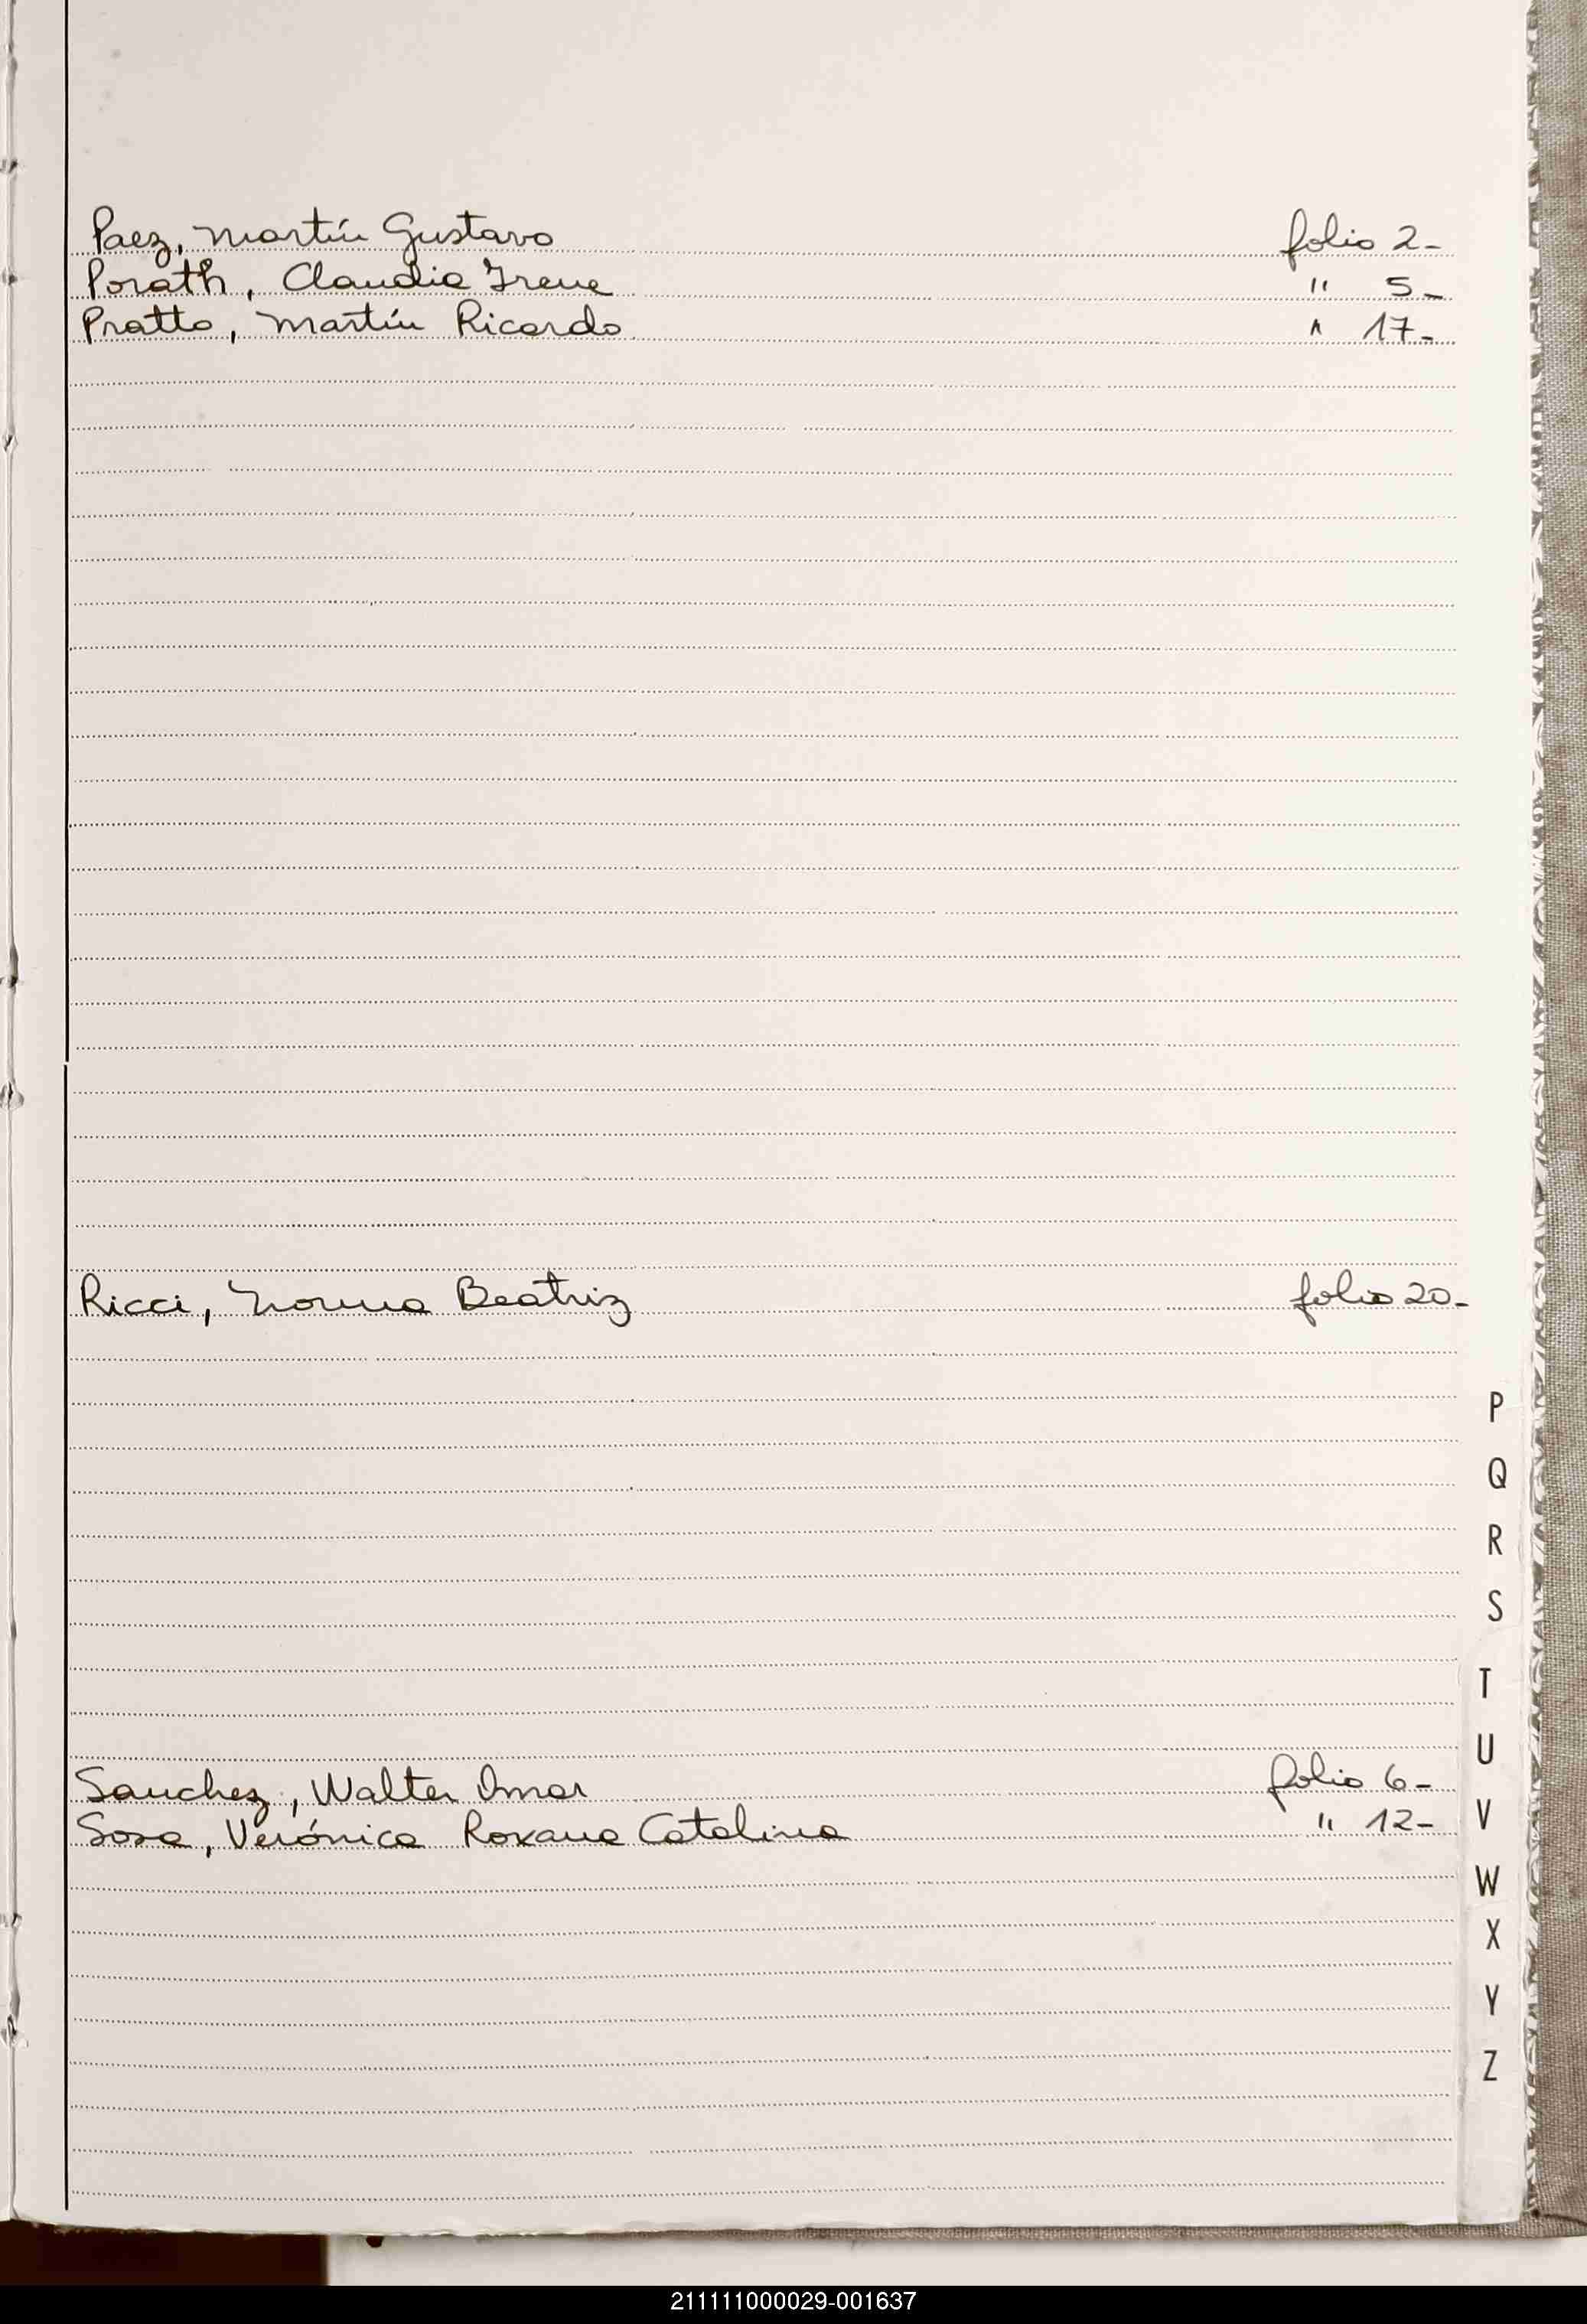 Paez, Martín Gustavo folio 2-
Porath, Claudia Irene " 5-
Pratto, Martín Ricardo " 17-
Ricci, Norma Beatriz folio 20-
P
Q
R
S
T
U
Sanchez, Walter Omar folio 6-
Sosa, Verónica Roxana Catalina " 12-
V
W
X
Y
Z
211111000029-001637